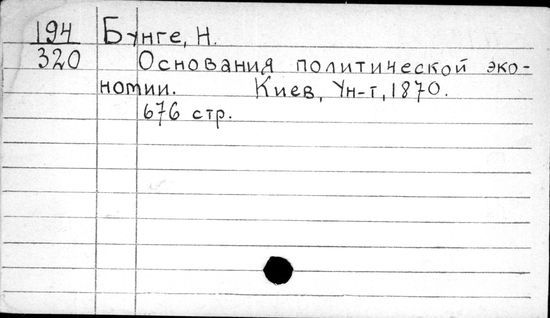 194 Бунге, Н.
320 Основания политической эко-
номии. Киев, Ун-т, 1870.
676 стр.